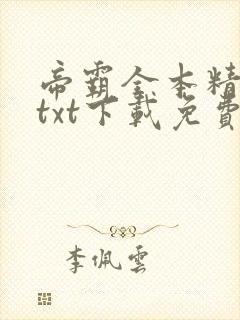 帝霸全本精
txt下載免費
李佩雲